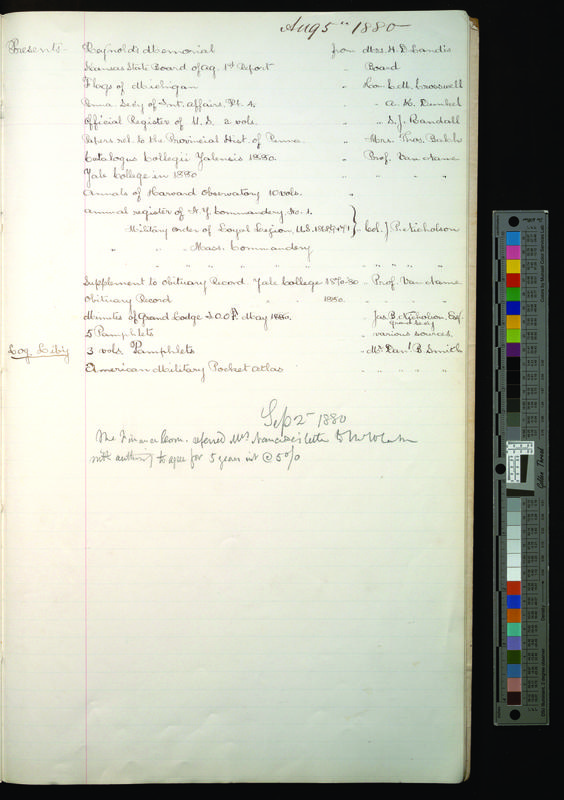 Aug 5th 1880
Presents - Reynolds Memorial from Mrs. H. D. Landis
Kansas State Board of Ag. 1st Report " Board
Flags of Michigan " Hon. C. M. Crosswell
Penna. Secy of Int. Affairs, Pt. 4. " A. K. Dunkel
Official Register of U.S. 2 vols. " S. J. Randall
Papers rel. to the Provincial Hist. of Penna. " Mrs. Thos. Balch
Catalogus Collegii Yalensis 1880. " Prof. Van Name
Yale College in 1880 " " " "
Annals of Harvard Observatory 10 vols. "
Annual register of N.Y. Commandery No. 1.
Military Order of Loyal Legion, U.S. } " Col. J. P. Nicholson
" " " Mass. Commandery
" " " " " " " " " "
Supplement to Obituary Record Yale College 1870-80 " Prof. Van Name
Obituary Record " " 1880. " " " "
Minutes of Grand Lodge I.O.O.F. May 1880. " Jas. B. Nicholson, Esq.
Grand Secy
5 Pamphlets " various sources.
Log. Lib'y 3 vols. Pamphlets " Mr. Danl. B. Smith
American Military Pocket Atlas " " " " "
Sep 2nd 1880
The Finance Com. referred Mrs letter to
with authority to agree for 5 years int @ 5 o/o